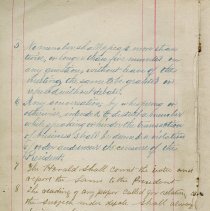 5 No member shall speak more than
twice, or longer than five minutes on
any question, without leave of the
meeting, the same to be granted or
refused without debate.
6 Any conversation, by whispering or
otherwise, intended to disturb a member
while speaking or under the transaction
of business shall be deemed a violation
of order and incur the censure of the
President.
7 The Herald shall count the votes and
report the same to the President.
8 The reading of any paper called for relating to
the subject under debate shall always